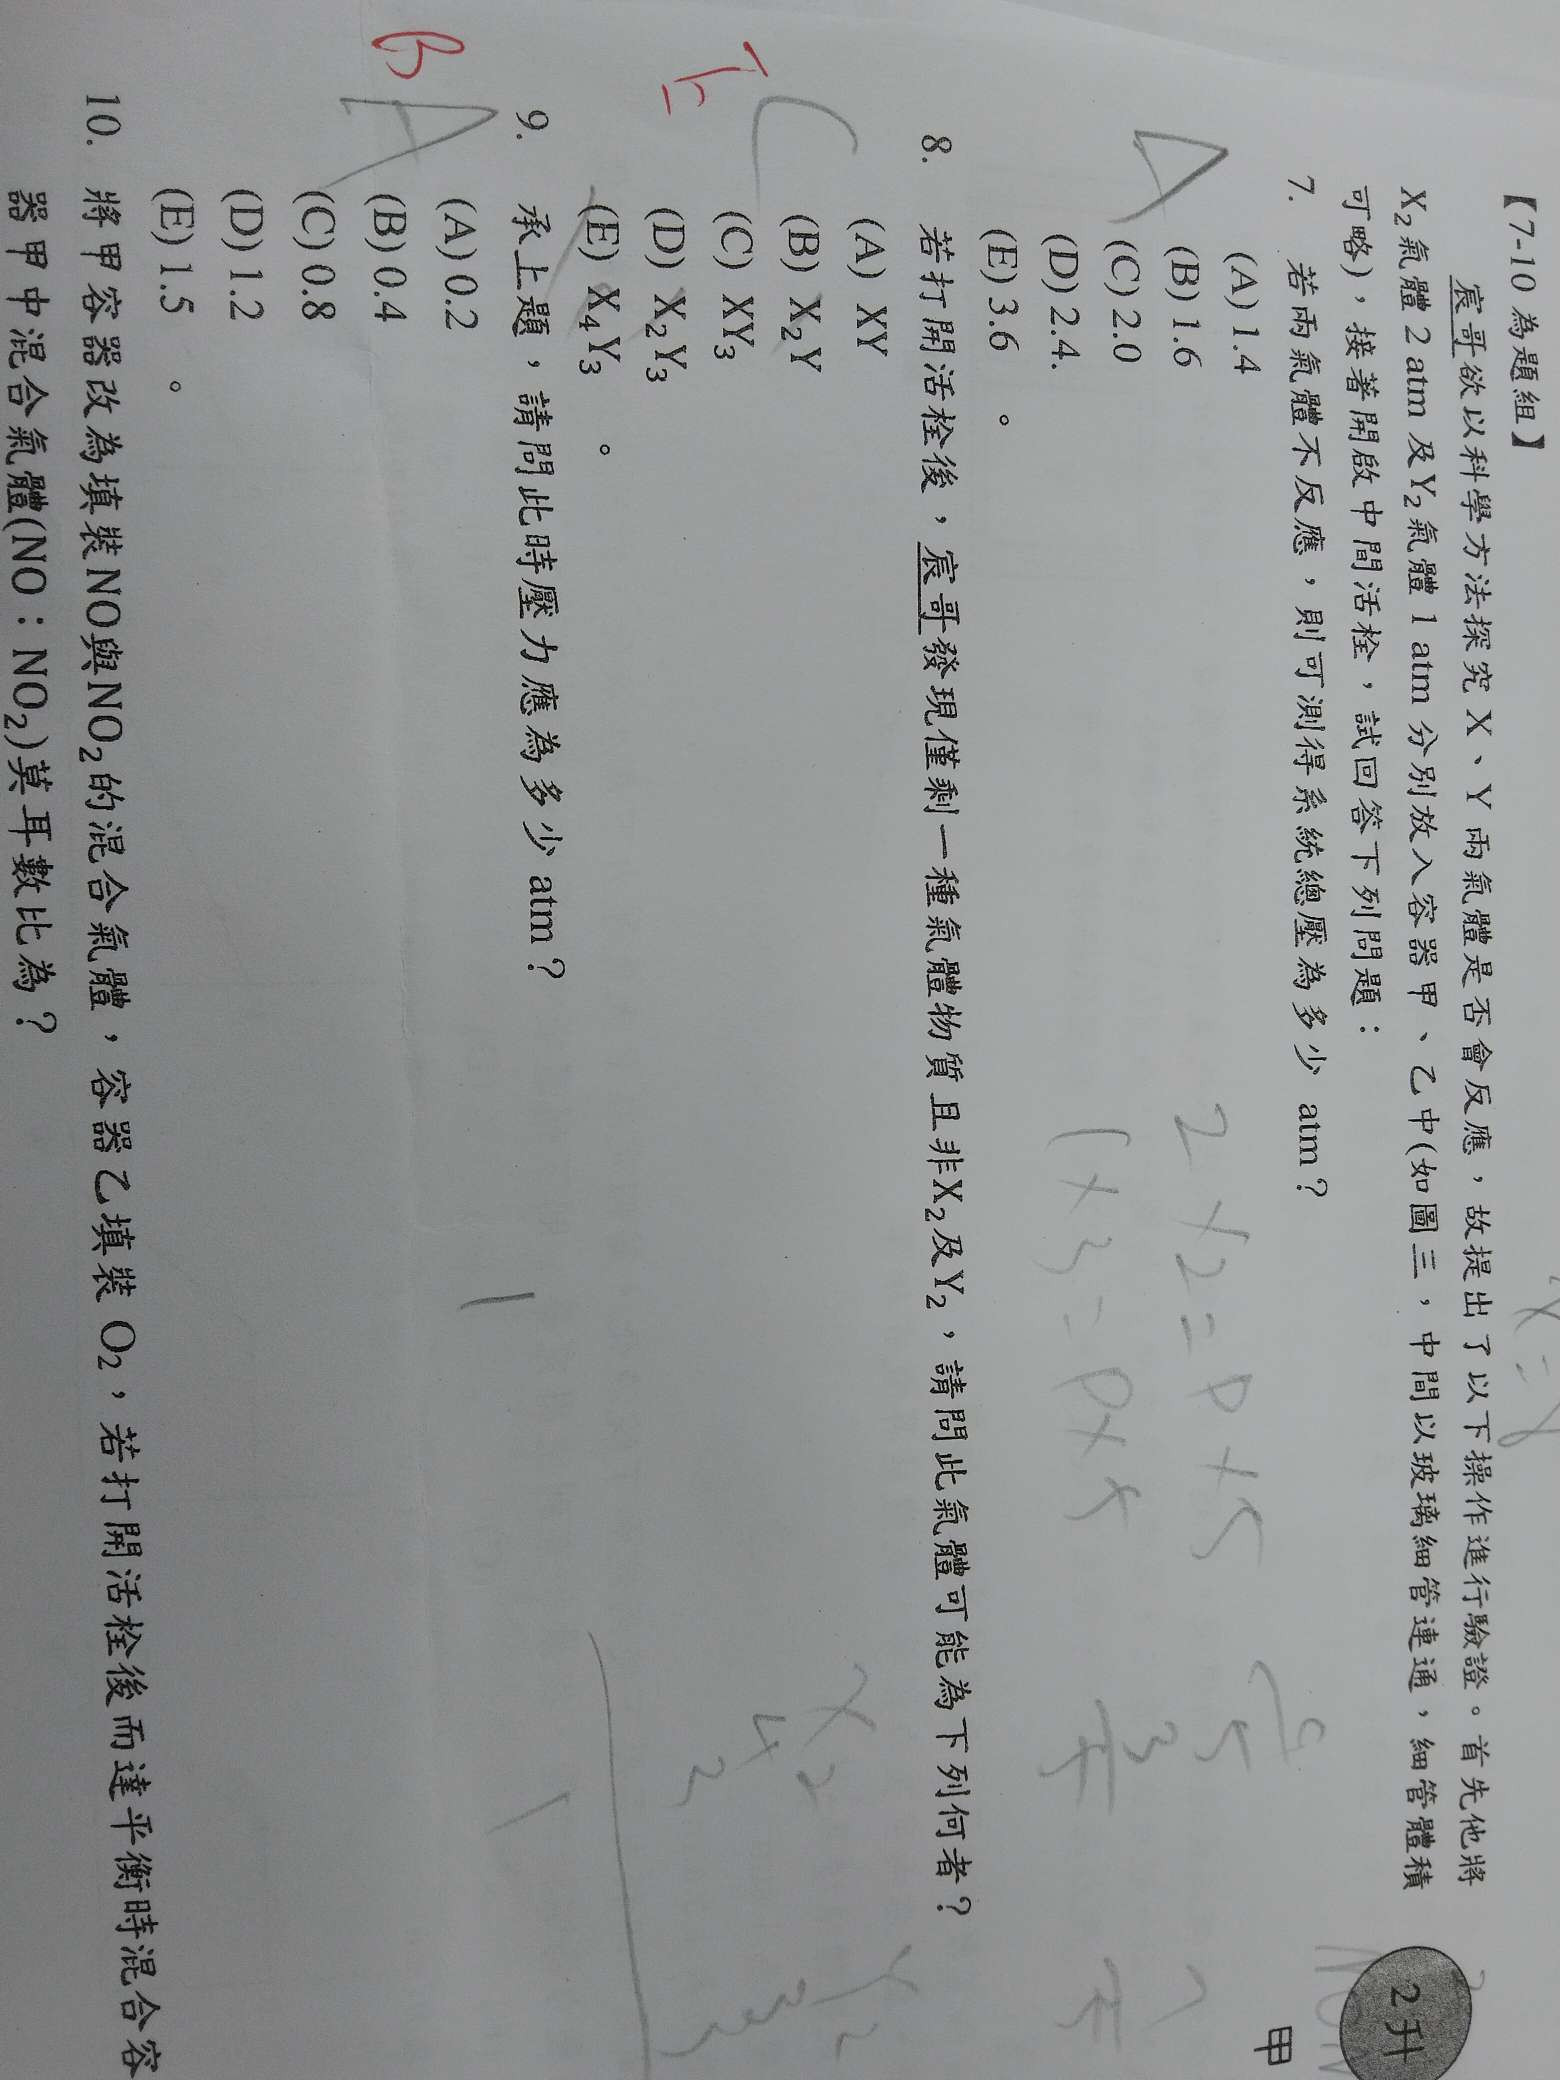 【7-10 為題組】
宸哥欲以科學方法探究 X、Y 兩氣體是否會反應，故提出了以下操作進行驗證。首先他將
X₂氣體 2 atm 及Y₂氣體 1 atm 分別放入容器甲、乙中(如圖三，中間以玻璃細管連通，細管體積
可略)，接著開啟中間活栓，試回答下列問題：
2升
甲
7. 若兩氣體不反應，則可測得系統總壓為多少 atm？
(A) 1.4
(B) 1.6
(C) 2.0
(D) 2.4.
(E) 3.6 。
A
2×2=P×5
1×3=P×5
8. 若打開活栓後，宸哥發現僅剩一種氣體物質且非X₂及Y₂，請問此氣體可能為下列何者？
(A) XY
(B) X₂Y
(C) XY₃
(D) X₂Y₃
(E) X₄Y₃ 。
C
E
9. 承上題，請問此時壓力應為多少 atm？
(A) 0.2
(B) 0.4
(C) 0.8
(D) 1.2
(E) 1.5 。
A
B
10. 將甲容器改為填裝NO與NO₂的混合氣體，容器乙填裝 O₂，若打開活栓後而達平衡時混合容
器甲中混合氣體(NO：NO₂)莫耳數比為？